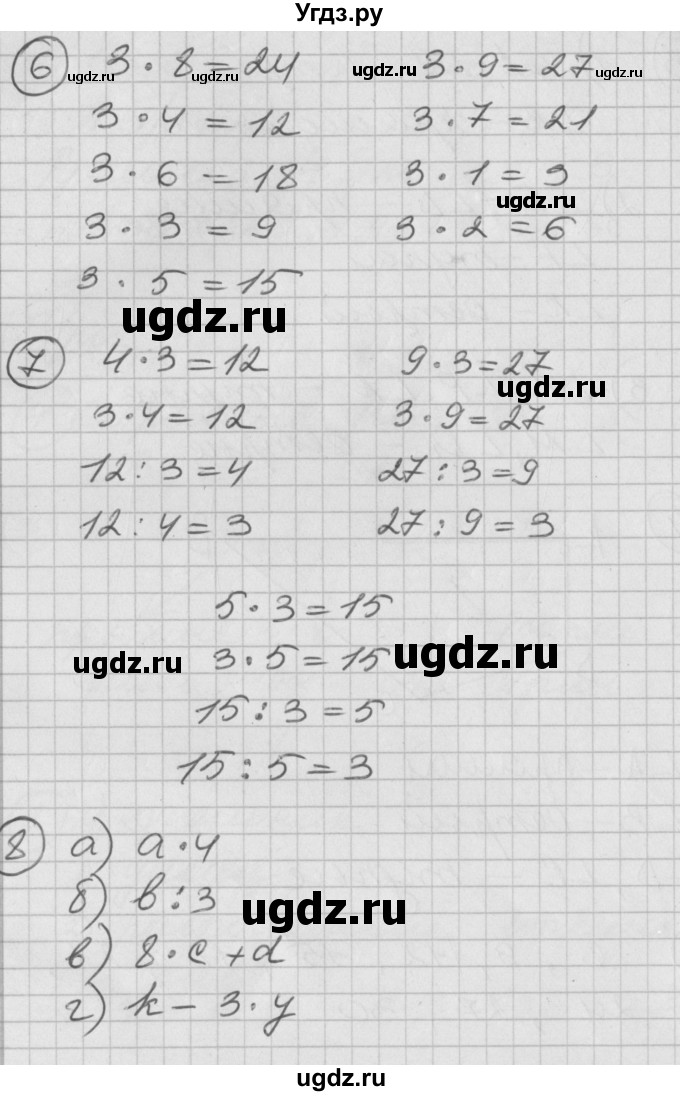 Угдз.ру
6 3 · 8 = 24 3 · 9 = 27
ugdz.ru ugdz.ru ugdz.ru ugdz.ru
3 · 4 = 12 3 · 7 = 21
3 · 6 = 18 3 · 1 = 3
ugdz.ru
3 · 3 = 9 3 · 2 = 6
3 · 5 = 15
ugdz.ru
7 4 · 3 = 12 9 · 3 = 27
ugdz.ru
3 · 4 = 12 3 · 9 = 27
12 : 3 = 4 27 : 3 = 9
12 : 4 = 3 27 : 9 = 3
5 · 3 = 15
ugdz.ru 3 · 5 = 15 ugdz.ru
15 : 3 = 5
15 : 5 = 3
8 а) a · 4
б) b : 3
ugdz.ru
в) 8 · c + d
г) k - 3 · y
ugdz.ru